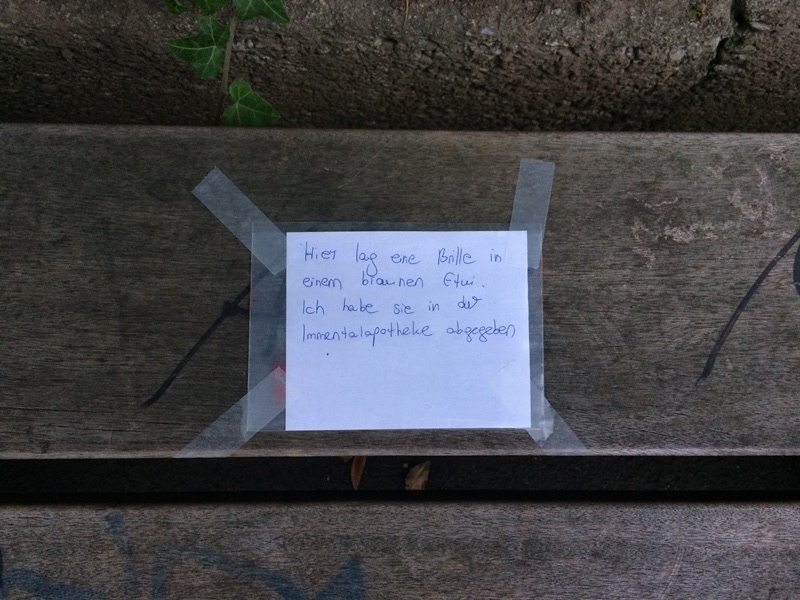 Hier lag eine Brille in
einem blauen Etui.
Ich habe sie in der
Immentalapotheke abgegeben